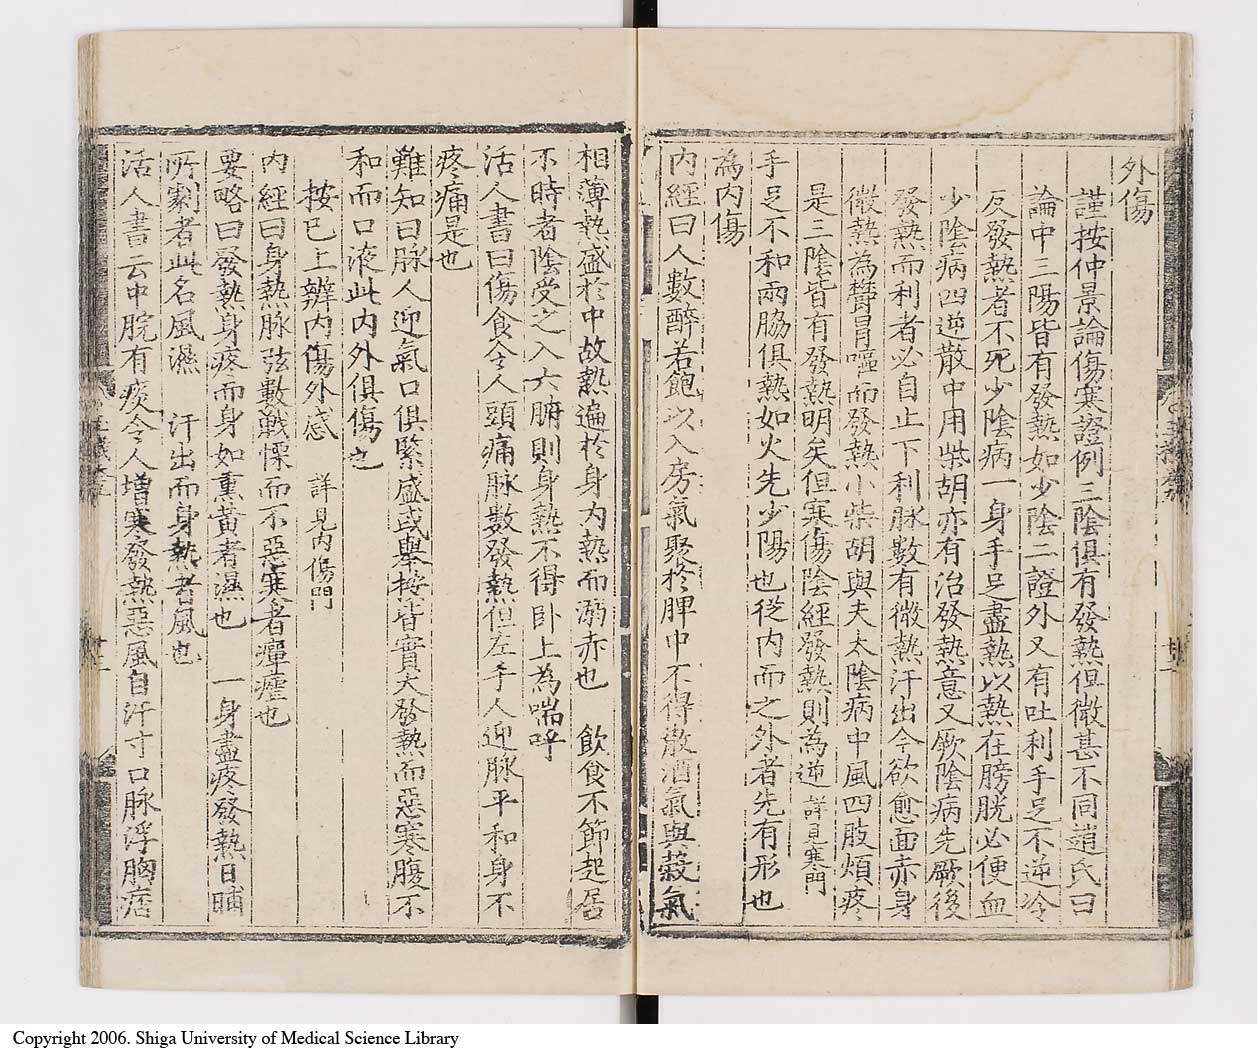 外傷
謹按仲景論傷寒證例三陰俱有發熱但微甚不同趙氏曰
論中三陽皆有發熱如少陰二證外又有吐利手足不逆冷
反發熱者不死少陰病一身手足盡熱以熱在膀胱必便血
少陰病四逆散中用柴胡亦有治發熱意又厥陰病先厥後
發熱而利者必自止下利脉數有微熱汗出今欲愈面赤身
微熱為欝冒嘔而發熱小柴胡與夫太陰病中風四肢煩疼
是三陰皆有發熱明矣但寒傷陰經發熱則為逆 詳見寒門
手足不和兩脇俱熱如火先少陽也從内而之外者先有形也
為内傷
内經曰人數醉若飽以入房氣聚於脾中不得散酒氣與穀氣
相薄熱盛於中故熱遍於身内熱而溺赤也 飲食不節起居
不時者陰受之入六腑則身熱不得卧上為喘呼
活人書曰傷食令人頭痛脉數發熱但左手人迎脉平和身不
疼痛是也
難知曰脉人迎氣口俱緊盛或舉按皆實大發熱而惡寒腹不
和而口液此内外俱傷之
按已上辨内傷外感 詳見内傷門
内經曰身熱脉弦數戰慄而不惡寒者癉瘧也
要略曰發熱身疼而身如熏黄者濕也 一身盡疼發熱日晡
所劇者此名風濕 汗出而身熱者風也
活人書云中脘有痰令人增寒發熱惡風自汗寸口脉浮胸痞